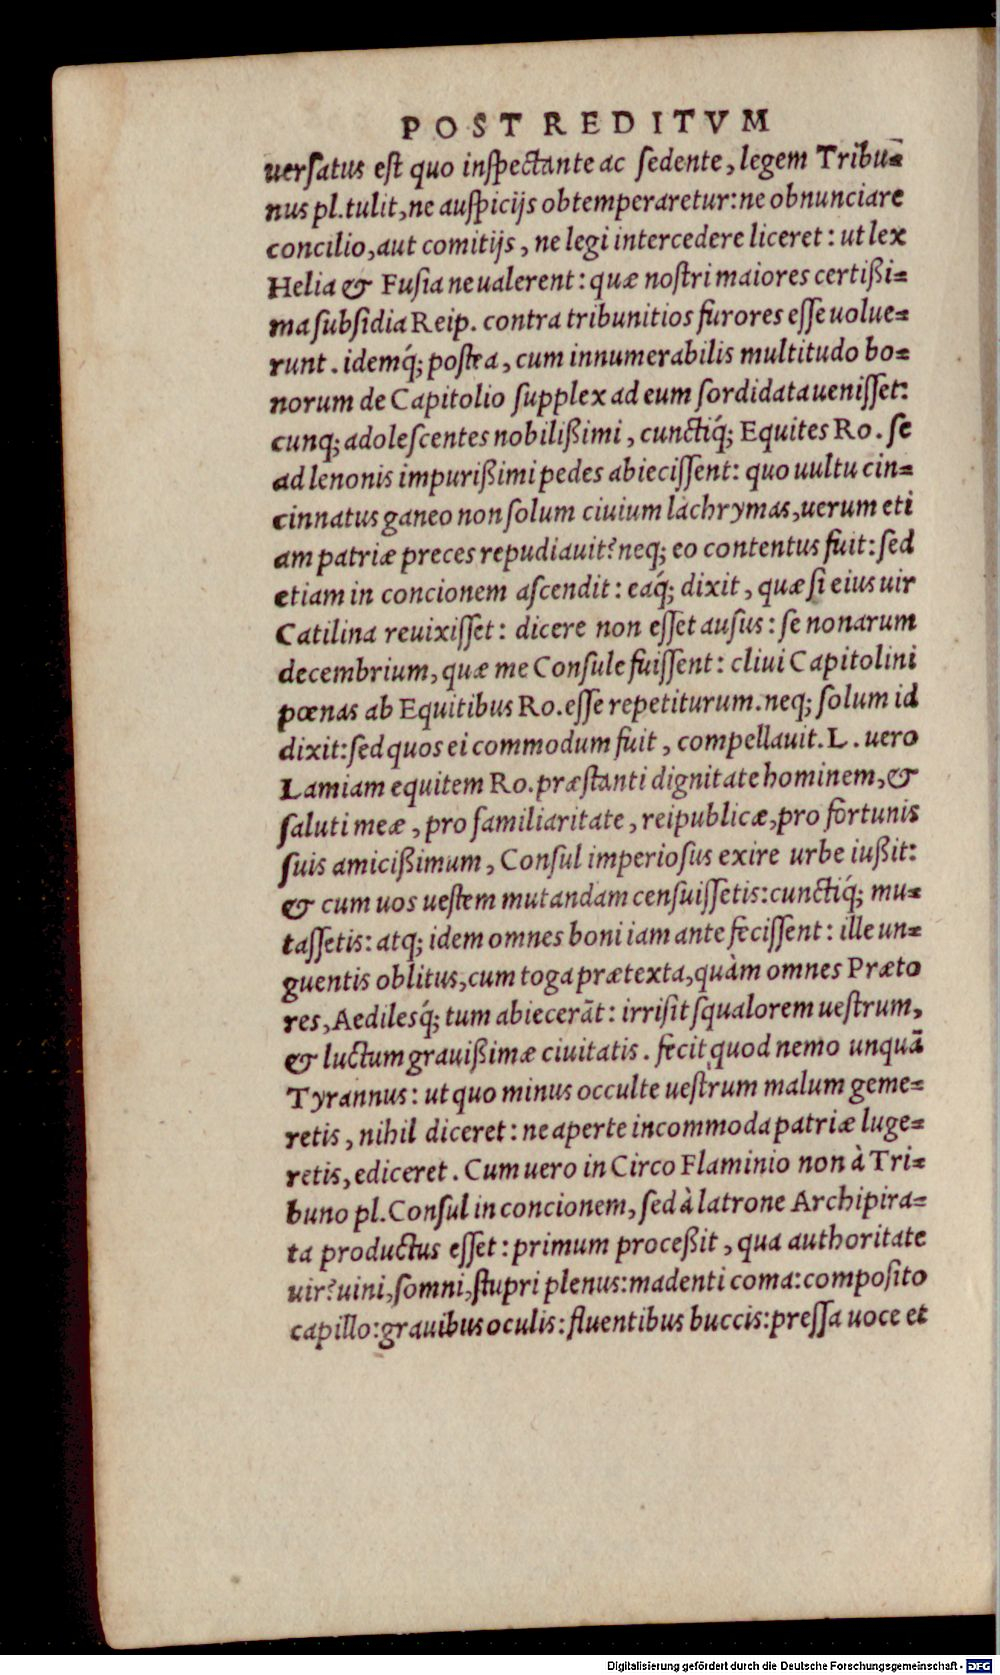 POST REDITVM
uerſatus eſt quo inſpectante ac ſedente, legem Tribu̅=
nus pl. tulit, ne auſpicijs obtemperaretur: ne obnunciare
concilio, aut comitijs, ne legi intercedere liceret: ut lex
Helia & Fuſia ne ualerent: quæ noſtri maiores certißi=
ma ſubſidia Reip. contra tribunitios furores eſſe uolue=
runt. idemq́; poſtea, cum innumerabilis multitudo bo=
norum de Capitolio ſupplex ad eum ſordidata ueniſſet:
cunq; adoleſcentes nobilißimi, cunctiq́; Equites Ro. ſe
ad lenonis impurißimi pedes abieciſſent: quo uultu cin=
cinnatus ganeo non ſolum ciuium lachrymas, uerum eti
am patriæ preces repudiauit? neq; eo contentus fuit: ſed
etiam in concionem aſcendit: eaq́; dixit, quæ ſi eius uir
Catilina reuixiſſet: dicere non eſſet auſus: ſe nonarum
decembrium, quæ me Conſule fuiſſent: cliui Capitolini
pœnas ab Equitibus Ro. eſſe repetiturum. neq; ſolum id
dixit: ſed quos ei commodum fuit, compellauit. L. uero
Lamiam equitem Ro. præſtanti dignitate hominem, &
ſaluti meæ, pro familiaritate, reipublicæ, pro fortunis
ſuis amicißimum, Conſul imperioſus exire urbe iußit:
& cum uos ueſtem mutandam cenſuiſſetis: cunctiq́; mu=
taſſetis: atq; idem omnes boni iam ante feciſſent: ille un=
guentis oblitus, cum toga prætexta, quàm omnes Præto
res, Aedilesq́; tum abiecerãt: irriſit ſqualorem ueſtrum,
& luctum grauißimæ ciuitatis. fecit quod nemo unquã
Tyrannus: ut quo minus occulte ueſtrum malum geme=
retis, nihil diceret: ne aperte incommoda patriæ luge=
retis, ediceret. Cum uero in Circo Flaminio non à Tri=
buno pl. Conſul in concionem, ſed à latrone Archipira=
ta productus eſſet: primum proceßit, qua authoritate
uir? uini, ſomni, ſtupri plenus: madenti coma: compoſito
capillo: grauibus oculis: fluentibus buccis: preſſa uoce et
Digitalisierung gefördert durch die Deutsche Forschungsgemeinschaft - DFG